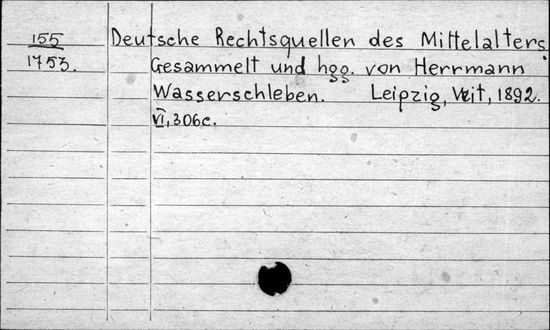 155
1753.
Deutsche Rechtsquellen des Mittelalters.
Gesammelt und hgg. von Herrmann
Wasserschleben. Leipzig, Veit, 1892.
VI, 306c.